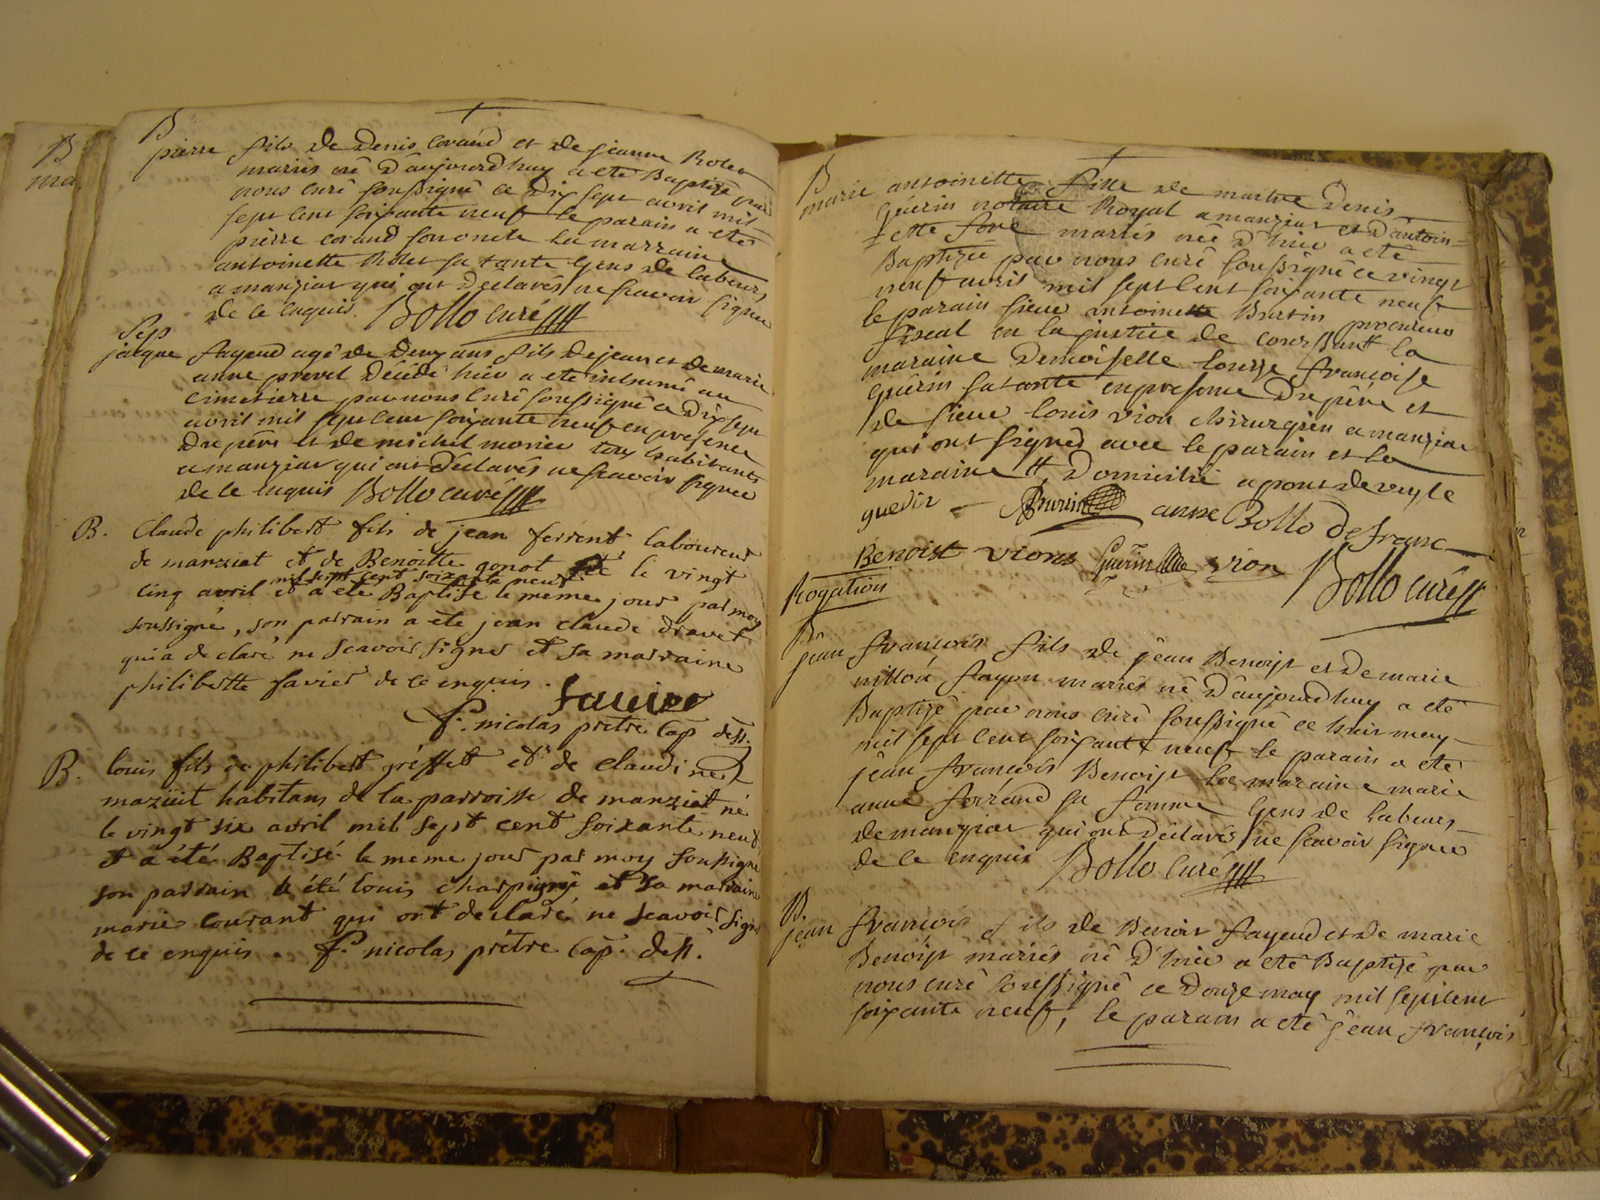 B
ma
B
pierre fils de Denis Coraud et de jeanne Rolet
mariés né d'aujourdhuy a eté Baptizé par
nous curé soussigné ce Dix sept avril mil
sept cent soixante neuf le parain a eté
pierre coraud son oncle la marraine
antoinette Rolet sa tante Gens de labeurs
a manziat qui ont declarés ne scavoir signer
de ce enquis. Bollo curé
Sep
jacque fayeud agé de Deux ans fils de jean et de marie
anne prevel Décédé hier a eté inhumé au
cimetierre par nous curé soussigné ce Dix sept
avril mil sept cent soixante neuf en présence
Du père et de michel morier tous habitants
a manziat qui ont Déclarés ne scavoir signer
de ce enquis Bollo curé
B. Claude philibert fils de jean ferrent laboureur
de manziat et de Benoitte gonot né le vingt
mil sept cent soixante neuf
cinq avril et a eté Baptisé le meme jour par moy
soussigné, son parrain a eté jean claude dravet
qui a declaré ne scavoir signer et sa marraine
philiberte savier de ce enquis.
Savier
f. nicolas prètre cap dess.
B. louis fils de philibert gréffet et de claudine
maziiit habitans de la parroisse de manziat né
le vingt six avril mil sept cent soixante neuf
et a été Baptisé le meme jour par moy soussigné
son parrain a été louis charpigny et sa marraine
marie courant qui ont declaré ne scavoir signer
de ce enquis. f. nicolas prètre cap. dess.
B
marie antoinette fille de maitre Denis
Guérin notaire Royal a manziat et d'antoin=
=ette foré mariés née d'hier a eté
Baptizée par nous curé soussigné ce vingt
neuf avril mil sept cent soixante neuf
le parain sieur antoinette Burtin procureur
fiscal en la justice de la
maraine Demoiselle louise francoise
Guérin sa tante en presence Du père et
de sieur louis vion chirurgien a manziat
qui ont signés avec le parain et la
maraine # Domicilié a pont de veyle
guérin Burtin anne Bollo defranc
Benoist vions Guérin vion
Bollo curé
Rogation
B
jean francois fils de jean Benoist et de marie
nillon fayon mariés né d'aujourdhuy a eté
Baptizé par nous curé soussigné ce huit may
mil sept cent soixante neuf le parain a eté
jean francois Benoist la maraine marie
anne ferrand sa femme Gens de labeurs
de manziat qui ont declarés ne scavoir signer
de ce enquis Bollo curé
B.
jean francois fils de Benoit fayeud et de marie
Benoist mariés né d'hier a eté Baptizé par
nous curé soussigné ce Douze may mil sept cent
soixante neuf, le parain a eté jean francois